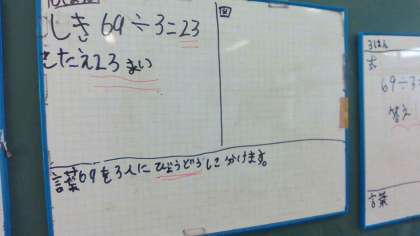 しき 69÷3=23
こたえ23まい
図
言葉69を3人にびょうどうに分けます。
3ぱん
69÷3=
答え
言葉